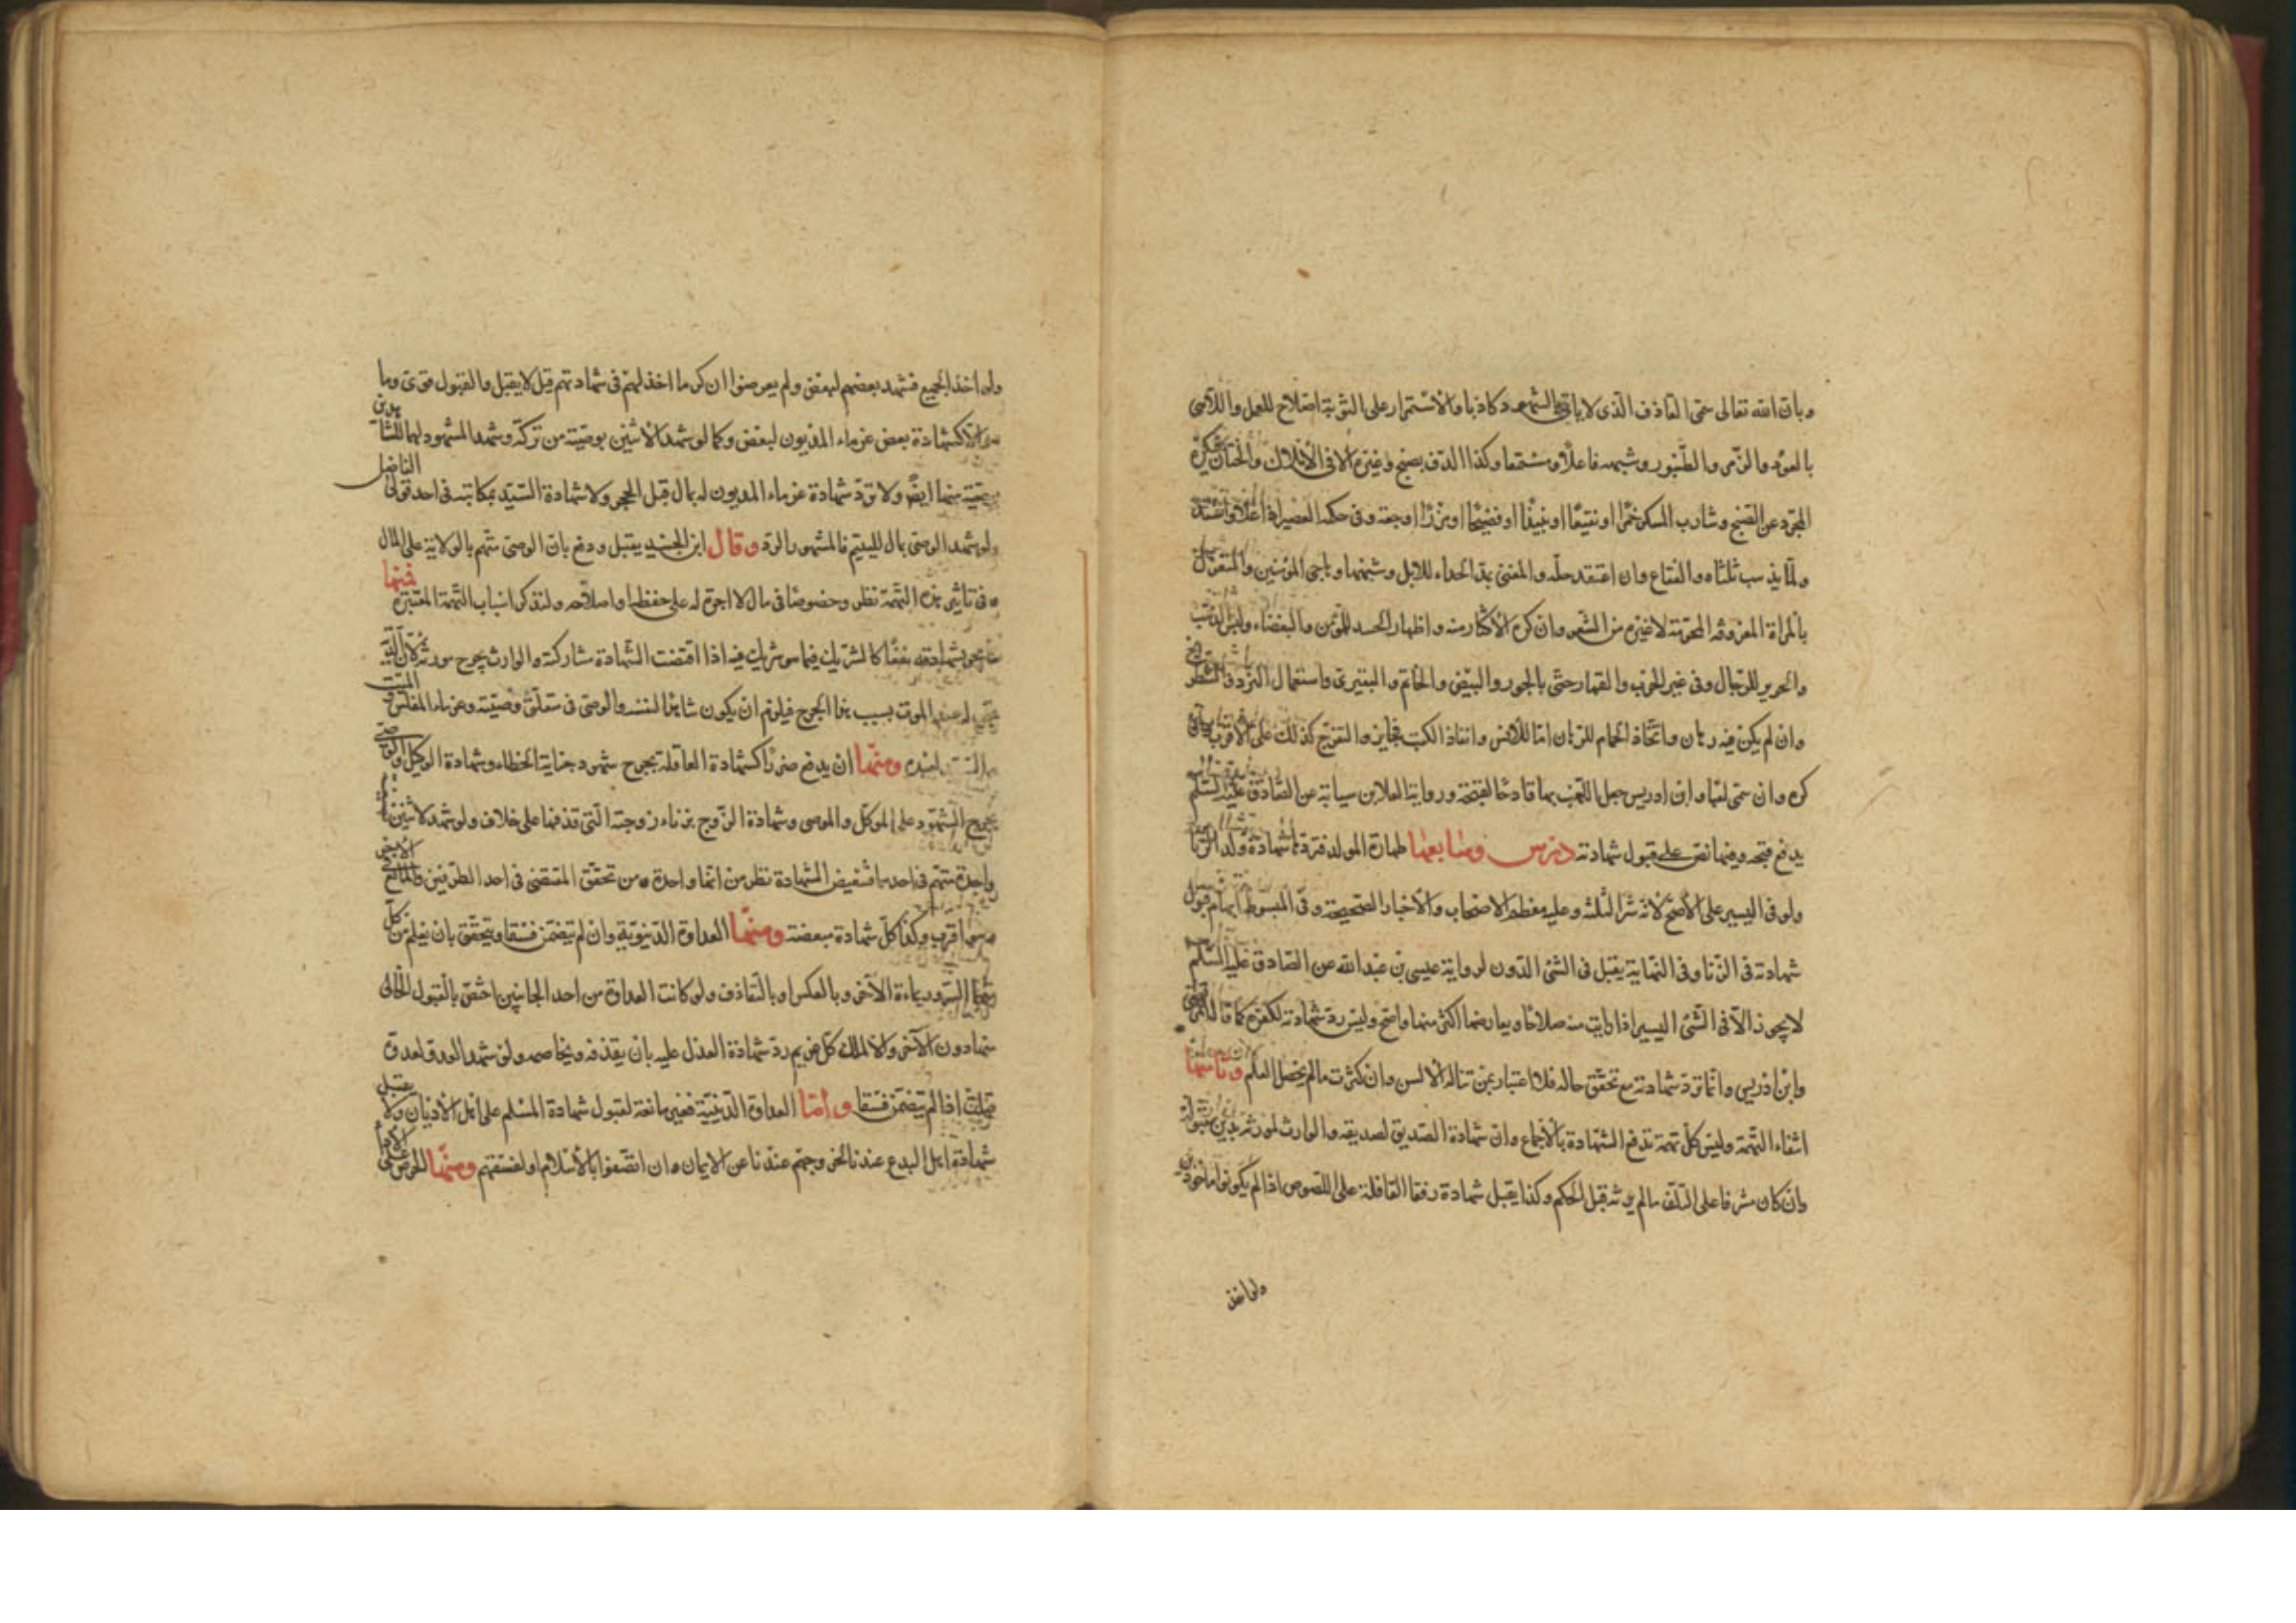 وبان الله تعالى سمى القاذف الذي لا ياتي بالشهود كاذبا والاستمرار على التوبة اصلاح للعمل واللاهي
بالعود والزمر والطنبور وشبهه فاعلا ومستمعا وكذا الدف بصنج وغيره الا في الاملاك والختان فيكره
المجرد عن الصنج وشارب المسكر خمرا او نقيعا او نبيذا او فضيخا او مزرا او جعة وفي حكمه العصير اذا غلا واشتد
ولما يذهب ثلثاه والفقاع وان اعتقد حله والمغني بمد الحداء للابل وشبهها وهاجي المؤمنين والمتغزل
بالمراة المعروفة المحرمة لا غيره من الشعر وان كره الاكثار منه واظهار الحسد للمؤمن والبغضاء ولبس الذهب
والحرير للرجال وفي غير الحرب والقمار حتى بالجوز والبيض والخاتم والبقيرى واستعمال النرد والشطرنج
وان لم يكن فيه رهان واتخاذ الحمام للرهان اما للانس وانفاذ الكتب فجايز والتفرج كذلك على الاقرب وان
كره وان سمى لعبا وابن ادريس جعل اللعب بها قادحا لقبحه ورواية العلا بن سيابة عن الصادق عليه السلم
يدفع قبحه وفيها نص على قبول شهادته درس وسابعها طهارة المولد فترد شهادة ولد الزنا
ولو في اليسير على الاصح لانه شر الثلثة وعليه معظم الاصحاب والاخبار الصحيحة وفي المبسوط ايهام قبول
شهادته في الزنا وفي النهاية يقبل في الشئ الدون لرواية عيسى بن عبد الله عن الصادق عليه السلم
لا يجوز الا في الشئ اليسير اذا رايت منه صلاحا ويعارضها اكثر منها واصح وليس رد شهادته لكفره كما قاله المرتضى
وابن ادريس وانما ترد شهادته مع تحقق حاله فلا اعتبار بمن تناله الالسن وان كثرت ما لم يحصل العلم وثامنها
انتفاء التهمة وليس كل تهمة تدفع الشهادة بالاجماع وان شهادة الصديق لصديقه والوارث لمورثه بدين مقبولة
وان كان مشرفا على التلف ما لم يرثه قبل الحكم وكذا يقبل شهادة رفقا القافلة على اللصوص اذا لم يكونوا ماخوذين
ولو اخذ
ولو اخذ الجميع فشهد بعضهم لبعض ولم يعرضوا ان ذكر ما اخذ لهم في شهادتهم قيل لا يقبل والقبول قوي وما
هو الا كشهادة بعض غرماء المديون لبعض وكما لو شهد الاثنين بوصية من تركة وشهد المشهود لهما للشاهدين
بوصية منها ايضا ولا ترد شهادة غرماء المديون له بمال قبل الحجر ولا شهادة السيد بمكاتبه في احد قولي الفاضل
ولو شهد الوصي بمال لليتيم فالمشهور الرد وقال ابن الجنيد يقبل ودفع بان الوصي متهم بالولاية على المال
وفي تاثير هذه التهمة نظر وخصوصا في مال لا اجرة له على حفظه او اصلاحه ولنذكر اسباب التهمة المعتبرة فمنها
ما يجر بشهادته نفعا كالشريك فيما هو شريك فيه اذا اقتضت الشهادة مشاركته والوارث بجرح مورثه لان الدية
تجب له عند الموت بسبب هذا الجرح فيلزم ان يكون شاهدا لنفسه والوصي في متعلق وصيته وغرماء المفلس والميت
والسيد لعبده ومنها ان يدفع ضررا كشهادة العاقلة بجرح شهود جناية الخطاء وشهادة الوكيل والوصي
بجرح الشهود على الموكل والموصي وشهادة الزوج بزناء زوجته التي قذفها على خلاف ولو شهد لاثنين بصيغة
واحدة متهم في احدهما ففي تبعيض الشهادة نظر من انها واحدة ومن تحقق المقتضي في احد الطرفين والمانع في الاخر
وهو اقرب وكذا كل شهادة مبعضة ومنها العداوة الدنيوية وان لم يتضمن فسقا ويتحقق بان يعلم من كل
منهما السرور بمساءة الاخر وبالعكس او بالتقاذف ولو كانت العداوة من احد الجانبين اختص بالقبول الخالي
منها دون الاخر والا لملك كل غريم رد شهادة العدل عليه بان يقذفه ويخاصمه ولو شهد العدو لعدوه
قبلت اذا لم يتضمن فسقا واما العداوة الدينية فغير مانعة لقبول شهادة المسلم على اهل الاديان ولا يقبل
شهادة اهل البدع عندنا لخروجهم عندنا عن الايمان وان اتصفوا بالاسلام او لفسقهم ومنها الحرص على الاداء